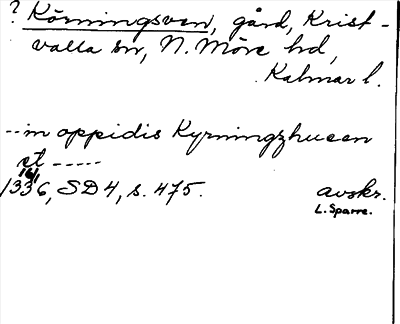 ? Körningsven, gård, Krist-
valla sn, N. Möre hd,
Kalmar l.
--in oppidis Kyrningzhueen
et -----
16/1
1336, SD4, s. 475. avskr.
L. Sparre.